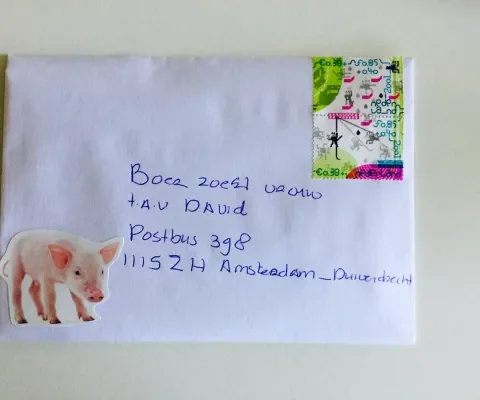 €0.39 ƒ0.85
+0.40
2001
nederland
ƒ0.85
+0.40
2001
€0.39 nederland
Boer zoekt vrouw
t.a.v DAVID
Postbus 398
1115ZH Amsterdam_Duivendrecht